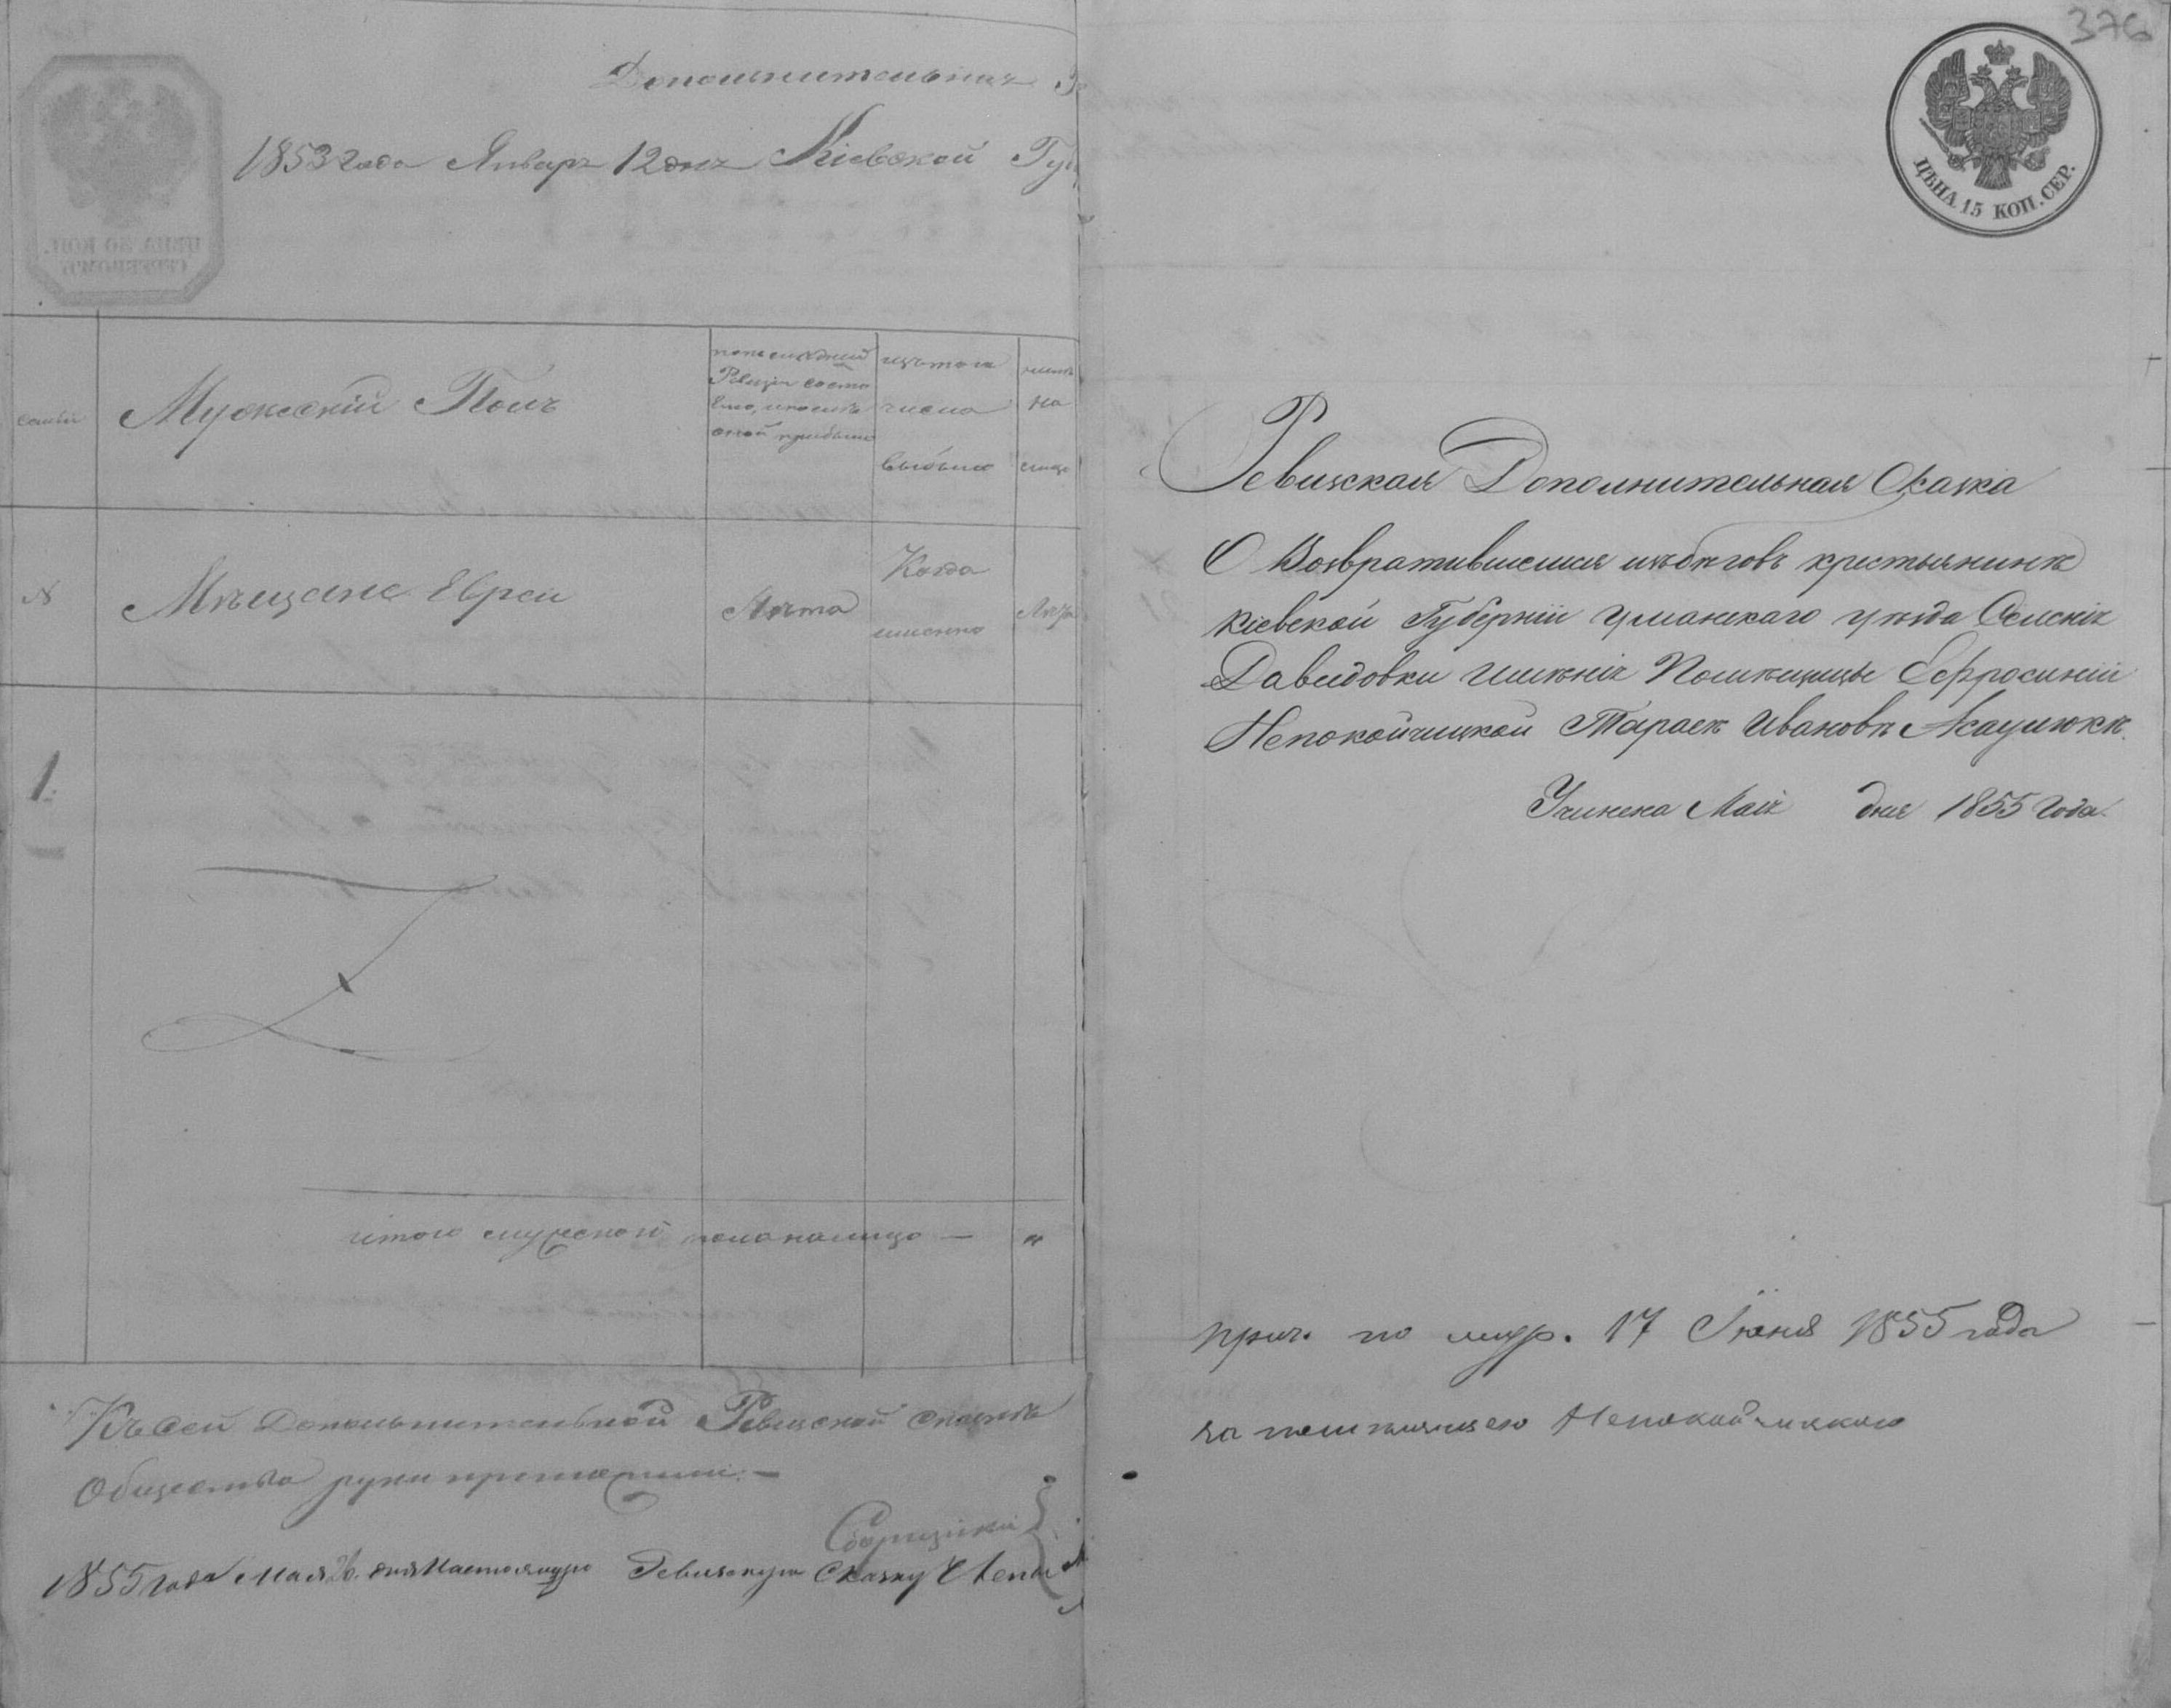 Дополнительная
1853 года Января 12 дня Кіевской Гу
ЦѢНА 30 КОП.
СЕРЕБРОМЪ
семьи
Мужескій Полъ
последней
Ревизіи состо
яло, и после
оной прибыло
изъ того
числа
выбыло
ныне
на
лицо
№
Мѣщане Евреи
Лѣта
Когда
именно
Лѣта
1.
итого мужеского пола налицо —
Къ сей Дополнительной Ревиской сказкѣ
Общества руки приложили: —
Сборщики
1855 года Мая 26. дня Настоящую Ревизскую Сказку
376
ЦѢНА 15 КОП. СЕР.
Ревизская Дополнительная Сказка
О Возвратившемся изъ бѣговъ крестьянинѣ
Кіевской Губерніи Уманскаго уѣзда Селенія
Давидовки имѣнія Помѣщицы Еефросиніи
Непокойчицкой Тарасѣ Ивановѣ
Учинена Маія дня 1855 года.
17 Іюня 1855 года
за помѣщицею Непокойчицкою